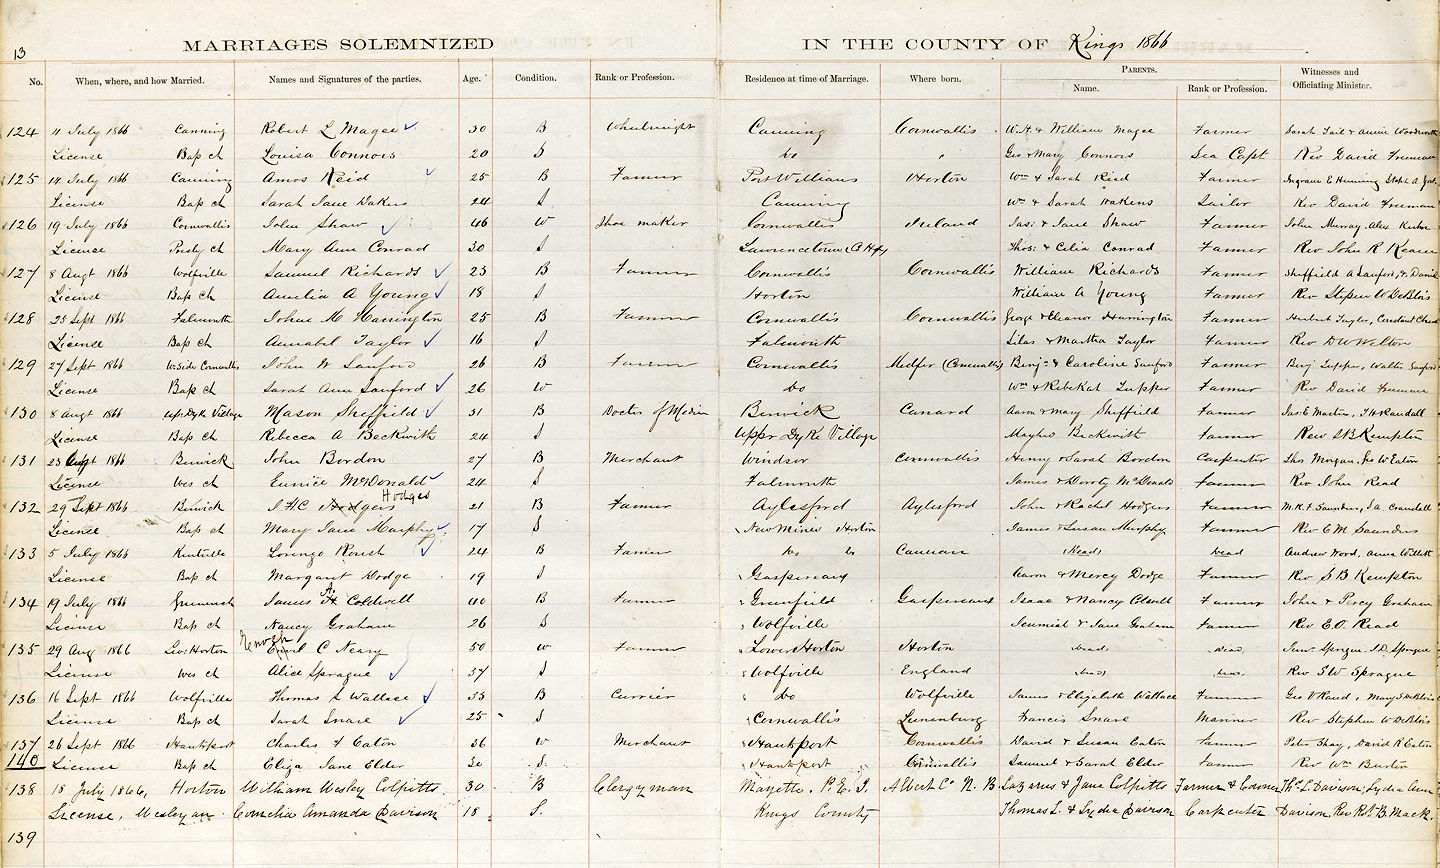 13
MARRIAGES SOLEMNIZED IN THE COUNTY OF Kings 1866
No. When, where, and how Married. Names and Signatures of the parties. Age. Condition. Rank or Profession. Residence at time of Marriage. Where born. PARENTS. Witnesses and
Name. Rank or Profession. Officiating Minister.
124 11 July 1866 Canning Robert L Magee 30 B Wheelwright Canning Cornwallis W. H. & William Magee Farmer Sarah
License Bap ch Louisa Connors 20 S Do " Geo & Mary Connors Sea Capt Rev David Freeman
125 14 July 1866 Canning Amos Reid 25 B Farmer Port Williams Horton Wm & Sarah Ried Farmer
License Bap ch Sarah Jane Dakens 24 S Canning Wm & Sarah Dakens Sailor Rev David Freeman
126 19 July 1866 Cornwallis John Shaw 46 W Shoe maker Cornwallis Ireland Jas: & Jane Shaw Farmer John Murray, Alex
License Presby ch Mary Ann Conrad 30 S Lawrencetown Thos: & Celia Conrad Farmer Rev John R
127 8 Augt 1866 Wolfville Samuel Richards 23 B Farmer Cornwallis Cornwallis William Richards Farmer Sheffield A Sanford,
License Bap ch Amelia A Young 18 S Horton William A Young Farmer Rev Stephen W DeBlois
128 25 Sept 1866 Falmouth M Harrington 25 B Farmer Cornwallis Cornwallis George & Eleanor Harrington Farmer Herbert Taylor,
License Bap ch Annabel Taylor 16 S Falmouth Silas & Martha Taylor Farmer Rev D W Welton
129 27 Sept 1866 Cornwallis John W Sanford 26 B Farmer Cornwallis (Cornwallis) Benj & Caroline Sanford Farmer Benj Tupper, Walter Sanford
License Bap ch Sarah Ann Sanford 26 W Do Wm & Rebekah Tupper Farmer Rev David Freeman
130 8 Augt 1866 Upr Dyke Village Mason Sheffield 31 B Doctor of Medicin Berwick Canard Aaron & Mary Sheffield Farmer Jas: E Martin, Randall
License Bap ch Rebecca A Beckwith 24 S Uppr Dyke Village Mayhew Beckwith Farmer Rev S B Kempton
131 23 1866 Berwick John Bordon 27 B Merchant Windsor Cornwallis Henry & Sarah Bordon Carpenter Thos Morgan, W Eaton
License Wes ch Eunice McDonald 24 S Falmouth James & Dorothy McDonald Farmer Rev John Read
Hodges
132 29 Sept 1866 Berwick J H C Hodgers 21 B Farmer Aylesford Aylesford John & Rachel Hodgers Farmer Saunders, Crandall
License Bap ch Mary Jane Murphy 17 S New Minas Horton James & Susan Murphy Farmer Rev E M Saunders
133 5 July 1866 Kentville Lorengo 24 B Farmer Do Do Canaan (Dead) Dead Andrew Wood,
License Bap ch Margaret Dodge 19 S Gaspereaux & Mercy Dodge Farmer Rev S B Kempton
134 19 July 1866 Greenwich James A Coldwell 40 B Farmer Greenfield Gaspereaux Isaac & Nancy Coldwell Farmer John & Percy Graham
License Bap ch Nancy Graham 26 S Wolfville Jeremiah & Jane Graham Farmer Rev E. O. Read
Enoch
135 29 Aug 1866 Lowr Horton C Neary 50 W Farmer Lower Horton Horton (Dead) Dead Sprague
License Wes ch Alice Sprague 37 S Wolfville England (Dead) Dead Rev S W Sprague
136 16 Sept 1866 Wolfville Thomas L Wallace 33 B Currier Do Wolfville James & Elizabeth Wallace Farmer Geo V Rand, Mary S DeBlois
License Bap ch Sarah Snare 25 S Cornwallis Lunenburg Francis Snare Mariner Rev Stephen W DeBlois
137 26 Sept 1866 Hantsport Charles F Eaton 36 W Merchant Hantsport Cornwallis David & Susan Eaton Farmer Peter Shay, David R Eaton
140 License Bap ch Eliza Jane Elder 30 S. Hantsport Cornwallis Samuel & Sarah Elder Farmer Rev Wm Burton
138 18 July 1866, Horton William Wesley Colpitts 30 B Clergyman P. E. I. Albert Co. N. B. Lazarus & Jane Colpitts Farmer & Thos L. Davison, Lydia Ann
License, Wesleyan Cornelia Amanda Davison 18 S. Kings County Thomas L. & Lydia Davison Carpenter Davison, Rev Robt B. Mack.
139